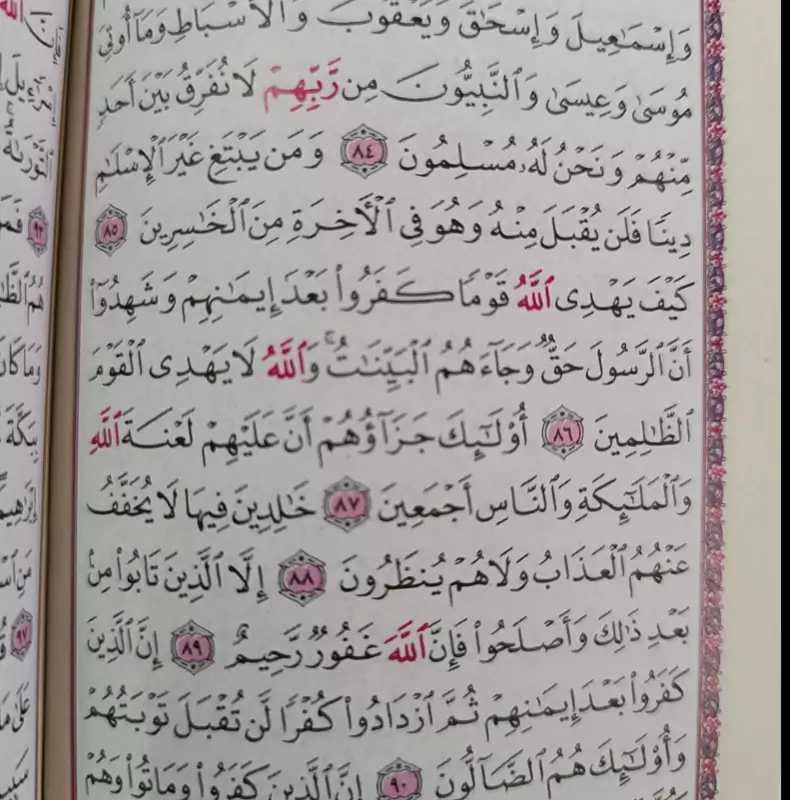 وَإِسْمَٰعِيلَ وَإِسْحَٰقَ وَيَعْقُوبَ وَٱلْأَسْبَاطِ وَمَآ أُوتِىَ
مُوسَىٰ وَعِيسَىٰ وَٱلنَّبِيُّونَ مِن رَّبِّهِمْ لَا نُفَرِّقُ بَيْنَ أَحَدٍ
مِّنْهُمْ وَنَحْنُ لَهُۥ مُسْلِمُونَ ٨٤ وَمَن يَبْتَغِ غَيْرَ ٱلْإِسْلَٰمِ
دِينًا فَلَن يُقْبَلَ مِنْهُ وَهُوَ فِى ٱلْأَخِرَةِ مِنَ ٱلْخَٰسِرِينَ ٨٥
كَيْفَ يَهْدِى ٱللَّهُ قَوْمًا كَفَرُوا۟ بَعْدَ إِيمَٰنِهِمْ وَشَهِدُوٓا۟
أَنَّ ٱلرَّسُولَ حَقٌّ وَجَآءَهُمُ ٱلْبَيِّنَٰتُ ۚ وَٱللَّهُ لَا يَهْدِى ٱلْقَوْمَ
ٱلظَّٰلِمِينَ ٨٦ أُو۟لَٰٓئِكَ جَزَآؤُهُمْ أَنَّ عَلَيْهِمْ لَعْنَةَ ٱللَّهِ
وَٱلْمَلَٰٓئِكَةِ وَٱلنَّاسِ أَجْمَعِينَ ٨٧ خَٰلِدِينَ فِيهَا لَا يُخَفَّفُ
عَنْهُمُ ٱلْعَذَابُ وَلَا هُمْ يُنظَرُونَ ٨٨ إِلَّا ٱلَّذِينَ تَابُوا۟ مِنۢ
بَعْدِ ذَٰلِكَ وَأَصْلَحُوا۟ فَإِنَّ ٱللَّهَ غَفُورٌ رَّحِيمٌ ٨٩ إِنَّ ٱلَّذِينَ
كَفَرُوا۟ بَعْدَ إِيمَٰنِهِمْ ثُمَّ ٱزْدَادُوا۟ كُفْرًا لَّن تُقْبَلَ تَوْبَتُهُمْ
وَأُو۟لَٰٓئِكَ هُمُ ٱلضَّآلُّونَ ٩٠ إِنَّ ٱلَّذِينَ كَفَرُوا۟ وَمَاتُوا۟ وَهُمْ